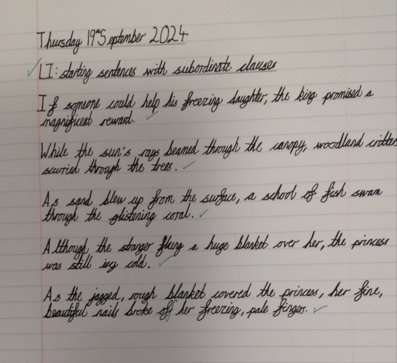 Thursday 19th September 2024
LI: starting sentences with subordinate clauses
If someone could help his freezing daughter, the king promised a
magnificent reward.
While the sun's rays beamed through the canopy, woodland critters
scurried through the trees.
As sand blew up from the surface, a school of fish swam
through the glistening coral.
Although the stranger flung a huge blanket over her, the princess
was still icy cold.
As the jagged, rough blanket covered the princess, her fine,
beautiful nails broke of her freezing, pale finger.